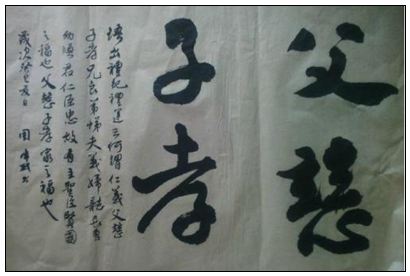 父慈
子孝
語出禮記禮運云何謂仁義父慈
子孝兄良弟悌夫義婦聽長惠
幼順君仁臣忠故有主聖臣賢國
之福也父慈子孝家之福也
歲次癸巳夏日周